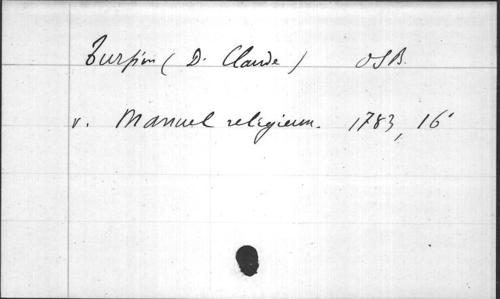 Turpin (D. Claude) OSB.
v. Manuel religieux. 1783, 16°